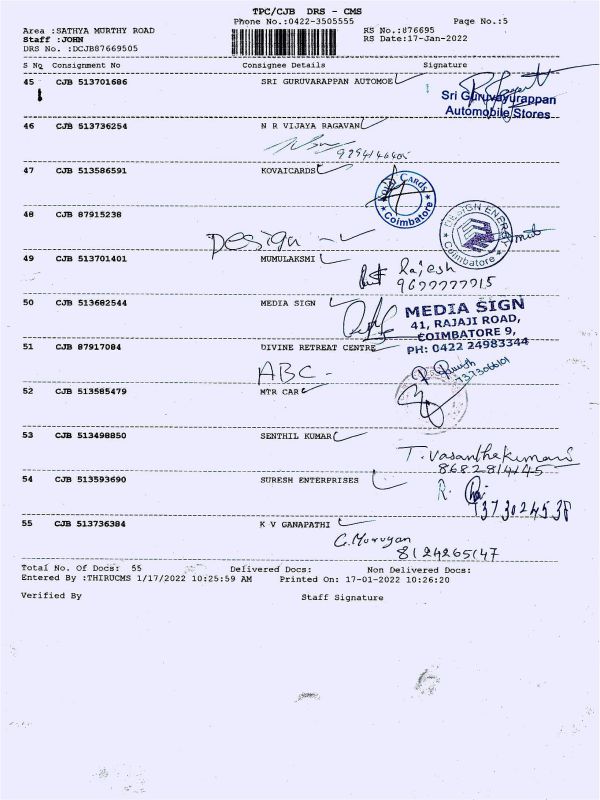 TPC/CJB DRS - CMS
Phone No.:0422-3505555 Page No.:5
Area :SATHYA MURTHY ROAD RS No.:876695
Staff :JOHN RS Date:17-Jan-2022
DRS No. :DCJB87669505
S No Consignment No Consignee Details Signature
45 CJB 513701686 SRI GURUVARAPPAN AUTOMOE
Sri Guruvayurappan
Automobile Stores
46 CJB 513736254 N R VIJAYA RAGAVAN
47 CJB 513586591 KOVAICARDS
CARDS
Coimbatore
48 CJB 87915238
DESIGN ENERGY
Coimbatore
Design
49 CJB 513701401 MUMULAKSMI
Rajesh
50 CJB 513682544 MEDIA SIGN
MEDIA SIGN
41, RAJAJI ROAD,
COIMBATORE 9,
PH: 0422 24983344
51 CJB 87917084 DIVINE RETREAT CENTRE
ABC -
7373066101
52 CJB 513585479 MTR CAR
53 CJB 513498850 SENTHIL KUMAR
T. Vasanthakumari
8682814145
54 CJB 513593690 SURESH ENTERPRISES
R.
9373024538
55 CJB 513736384 K V GANAPATHI
G. Murugan
8124265147
Total No. Of Docs: 55 Delivered Docs: Non Delivered Docs:
Entered By :THIRUCMS 1/17/2022 10:25:59 AM Printed On: 17-01-2022 10:26:20
Verified By Staff Signature